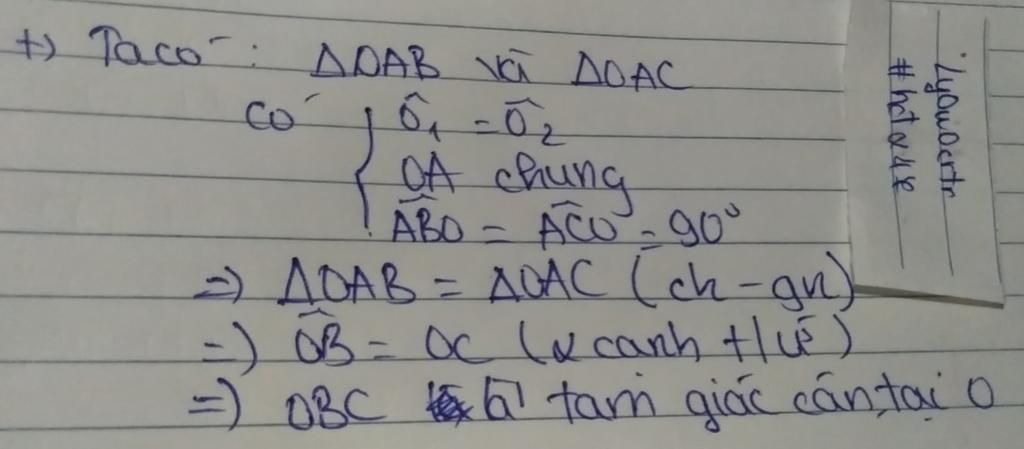 +) Ta có: ΔOAB và ΔOAC
có { Ô₁ = Ô₂
OA chung
ABO = ACO = 90°
=) ΔOAB = ΔOAC (ch - gn)
=) OB = OC (2 cạnh t/ứ)
=) OBC là tam giác cân tại O